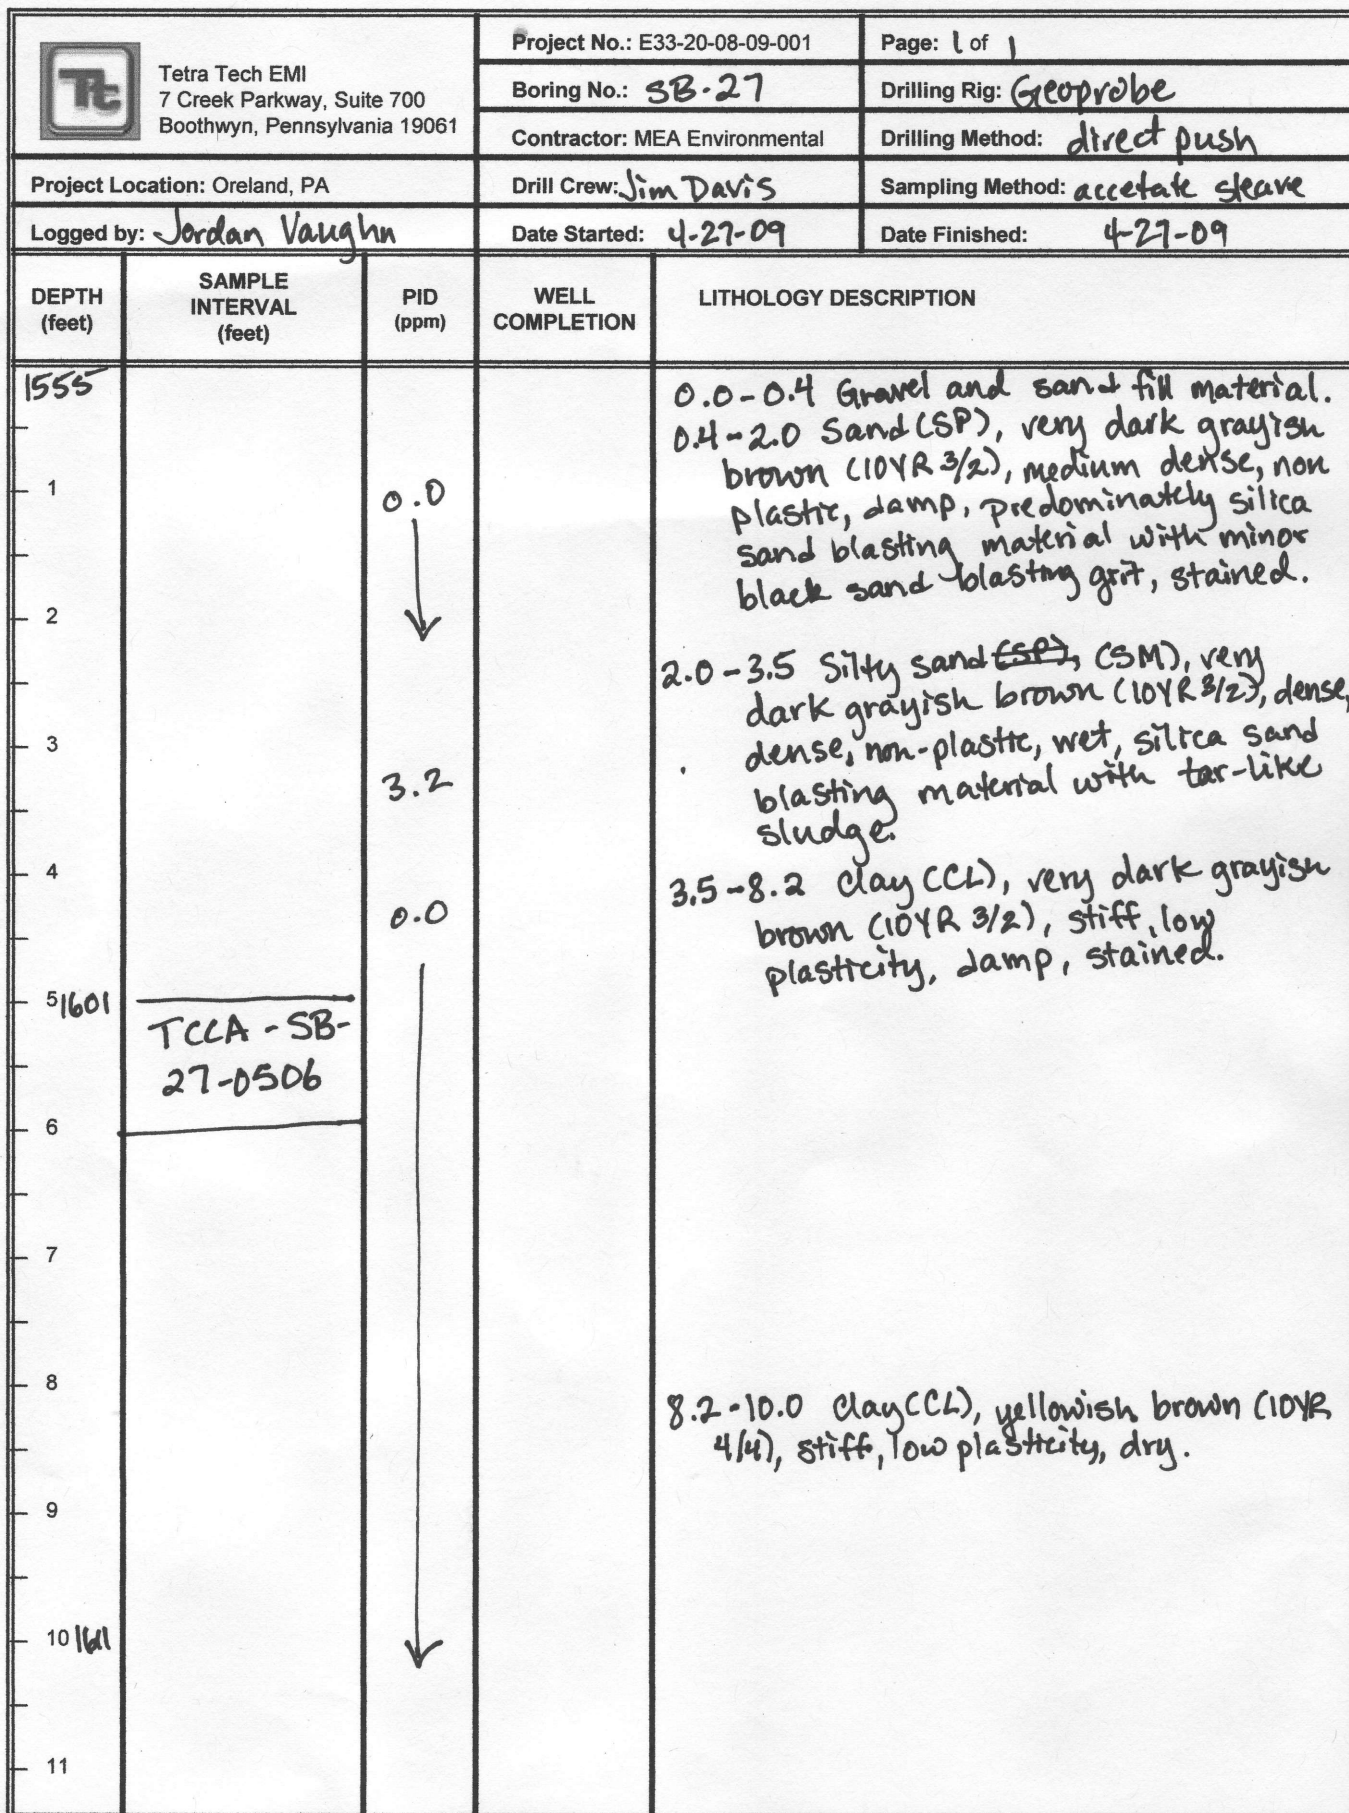 Tt
Tetra Tech EMI
7 Creek Parkway, Suite 700
Boothwyn, Pennsylvania 19061
Project No.: E33-20-08-09-001
Page: 1 of 1
Boring No.: SB-27
Drilling Rig: Geoprobe
Contractor: MEA Environmental
Drilling Method: direct push
Project Location: Oreland, PA
Drill Crew: Jim Davis
Sampling Method: accetate sleave
Logged by: Jordan Vaughn
Date Started: 4-27-09
Date Finished: 4-27-09
DEPTH
(feet)
SAMPLE
INTERVAL
(feet)
PID
(ppm)
WELL
COMPLETION
LITHOLOGY DESCRIPTION
1555
0.0-0.4 Gravel and sand fill material.
0.4-2.0 Sand (SP), very dark grayish
brown (10YR 3/2), medium dense, non
1
0.0
plastic, damp, predominately silica
sand blasting material with minor
black sand blasting grit, stained.
2
2.0-3.5 Silty sand (SP), (SM), very
dark grayish brown (10YR 3/2), dense,
3
dense, non-plastic, wet, silica sand
3.2
blasting material with tar-like
sludge.
4
3.5-8.2 Clay (CL), very dark grayish
0.0
brown (10YR 3/2), stiff, low
plasticity, damp, stained.
5 1601
TCCA-SB-
27-0506
6
7
8
8.2-10.0 Clay (CL), yellowish brown (10YR
4/4), stiff, low plasticity, dry.
9
10 1611
11